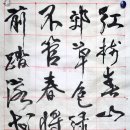 红树青山
郊草色绿
不管春将
前踏落花